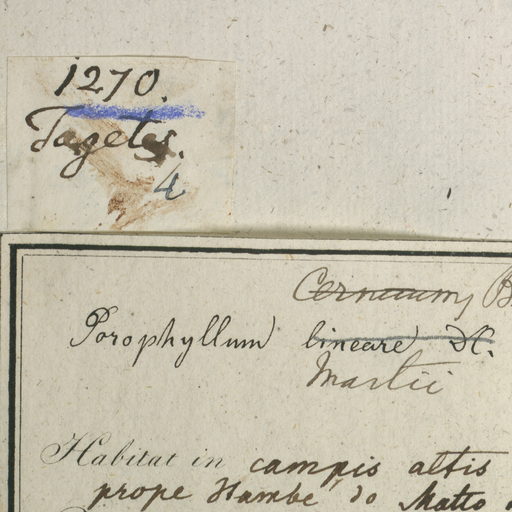 1270.
Tagetes.
4
Cernuum, B
Porophyllum lineare DC.
Martii
Habitat in campis altis
prope do Matto